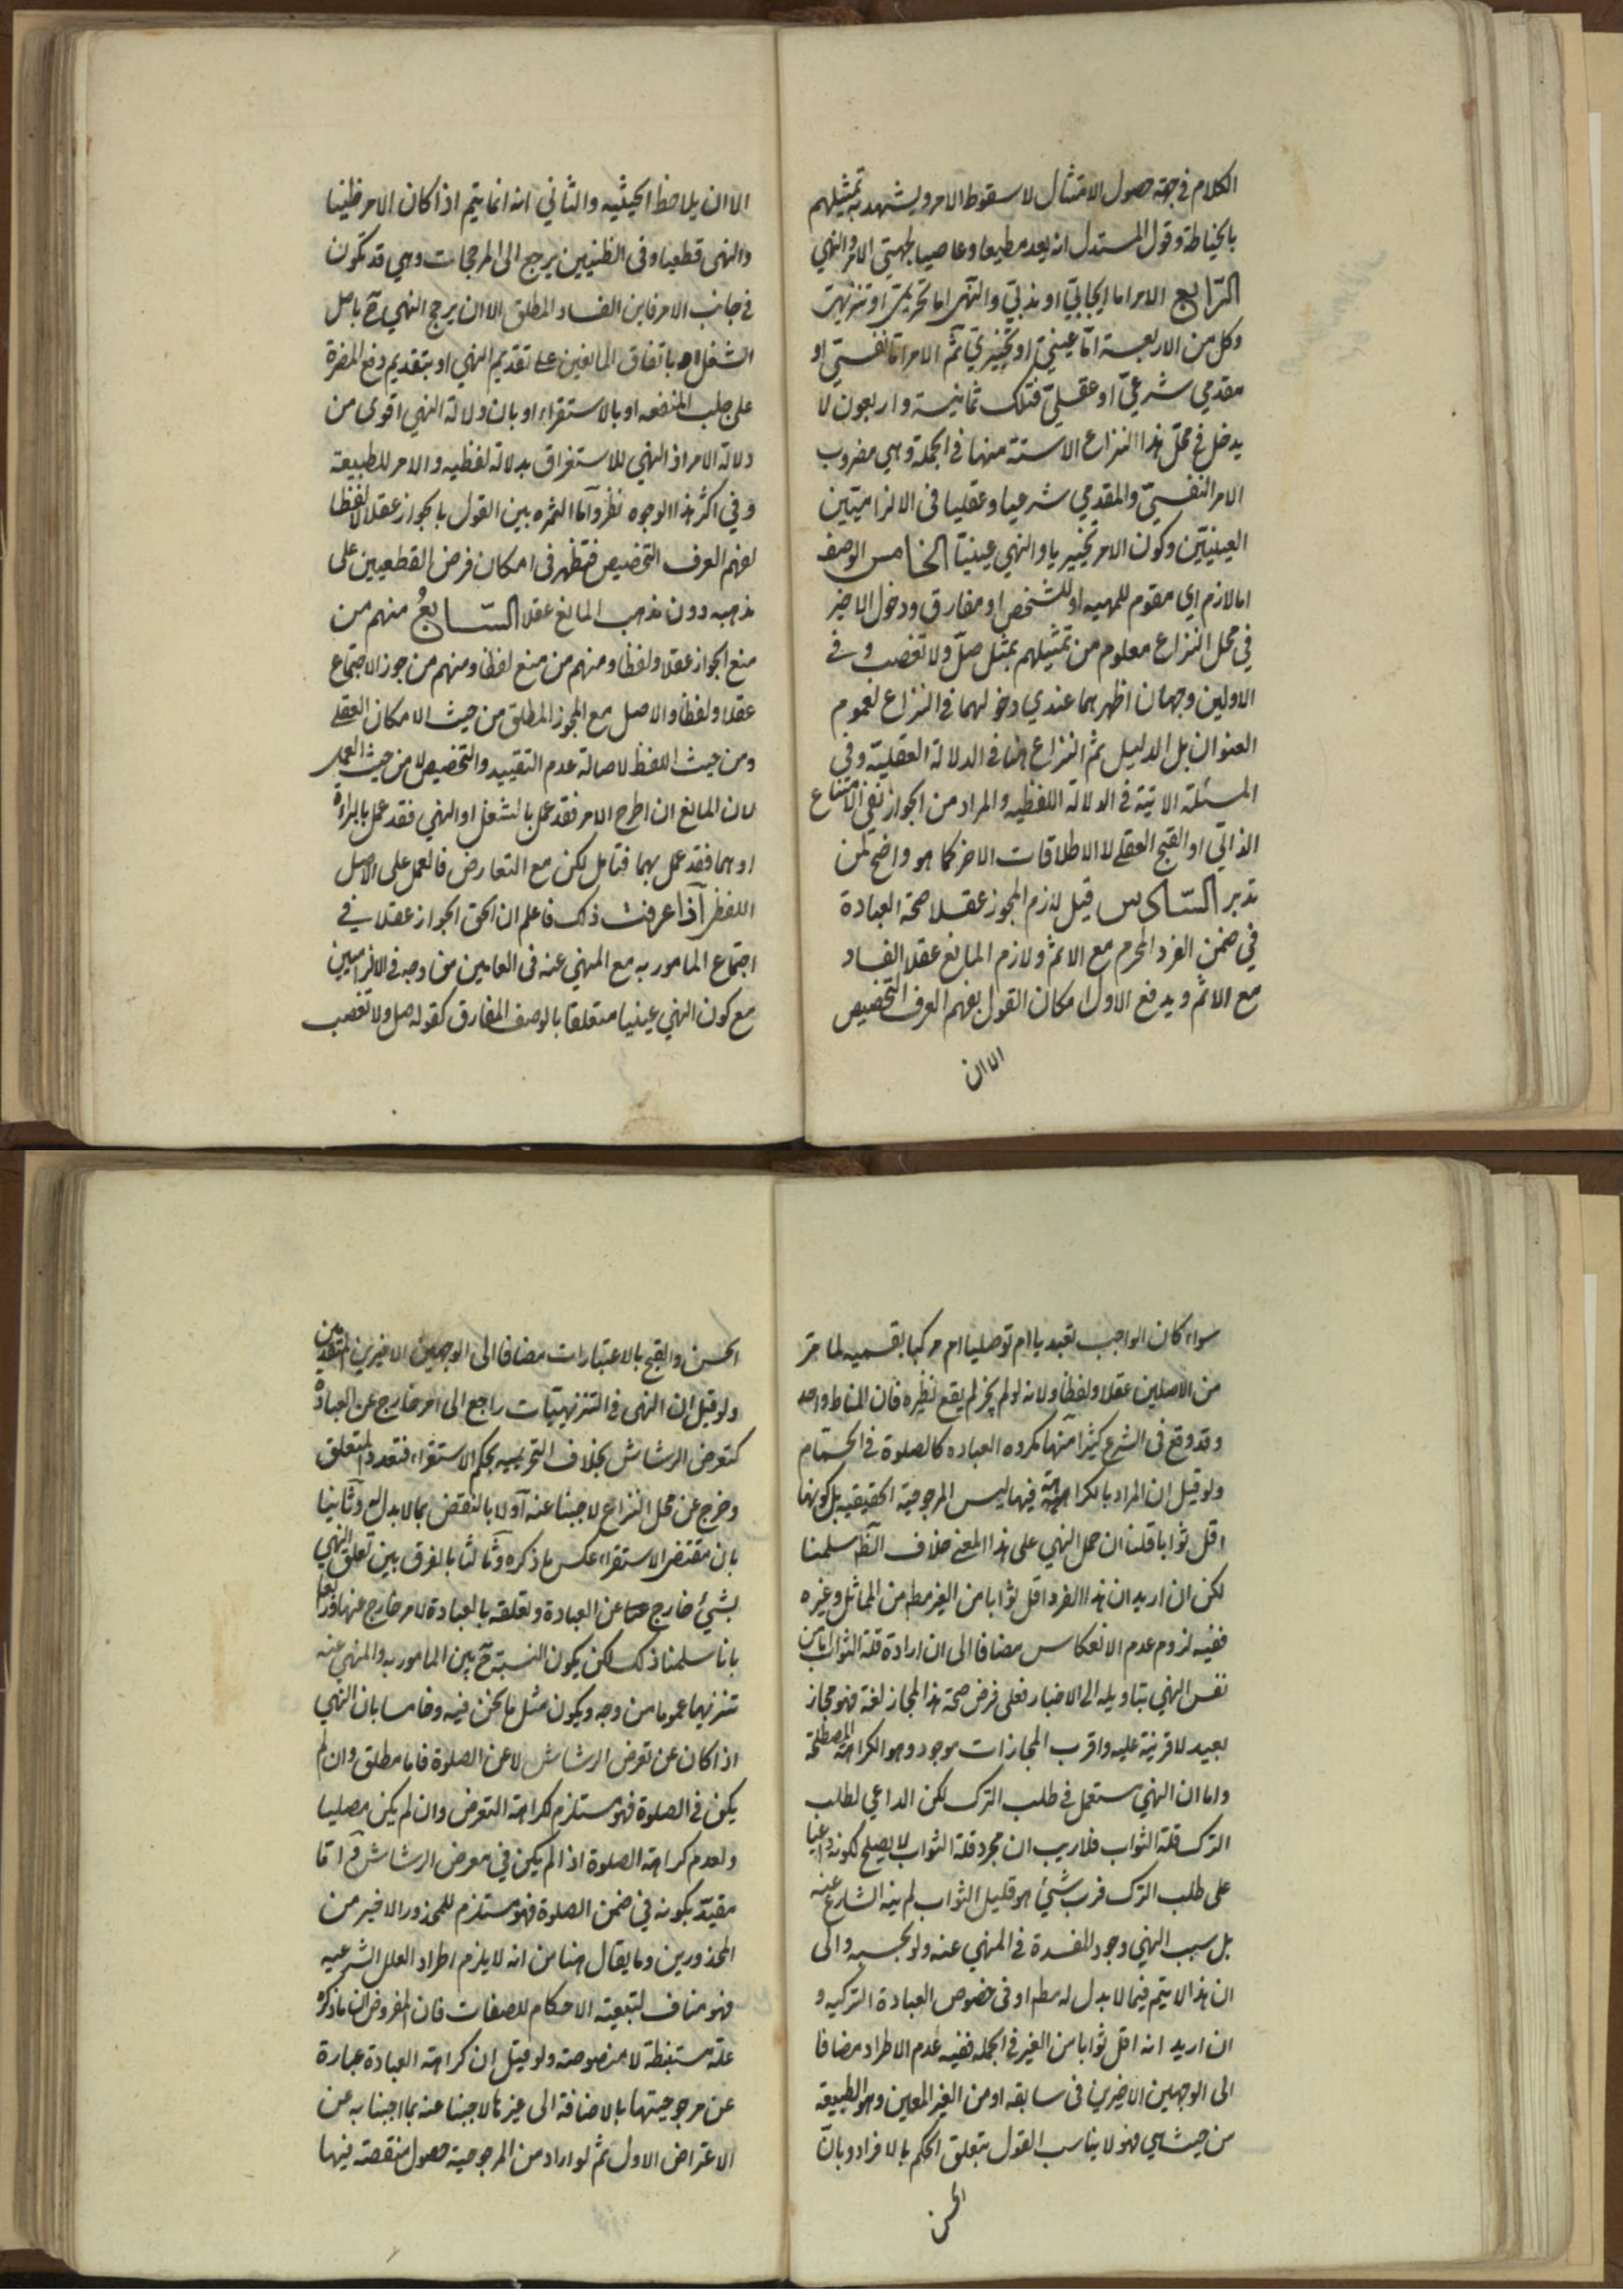 الكلام في جهة حصول الامتثال لا سقوط الامر ويشهد به تمثيلهم
بالخياطة وقول المستدل انه يعد مطيعا وعاصيا لجهتي الامر والنهي
الرابع الامر اما ايجابي او ندبي والنهي اما تحريمي او تنزيهي
وكل من الاربعة اما عيني او تخييري ثم الامر اما نفسي او
مقدمي شرعي او عقلي فتلك ثمانية واربعون لا
يدخل في محل هذا النزاع الا ستة منها في الجملة وهي مضروب
الامر النفسي والمقدمي شرعيا وعقليا في الالزاميين
العينيين وكون الامر تخييريا والنهي عينيا الخامس الوصف
اما لازم اي مقوم للمهيه او للشخص او مفارق ودخول الاخير
في محل النزاع معلوم من تمثيلهم بمثل صل ولا تغصب وفي
الاولين وجهان اظهرهما عندي دخولهما في النزاع لعموم
العنوان بل الدليل ثم النزاع هنا في الدلالة العقلية وفي
المسئلة الاتية في الدلالة اللفظيه والمراد من الجواز نفي الامتناع
الذاتي او القبح العقلي لا الاطلاقات الاخر كما هو واضح لمن
تدبر السادس قيل لازم المجوز عقلا صحة العبادة
في ضمن الفرد المحرم مع الاثم ولازم المانع عقلا الفساد
مع الاثم ويدفع الاول امكان القول بفهم العرف التخصيص
الا ان
الا ان يلاحظ الحيثيه والثاني انه انما يتم اذا كان الامر ظنيا
والنهى قطعيا وفى الظنيين يرجع الى المرجحات وهي قد تكون
في جانب الامر فاين الفساد المطلق الا ان يرجح النهي ح باصل
الشغل او باتفاق المانعين على تقديم النهي او بتقديم دفع المضرة
على جلب المنفعه او بالاستقراء او بان دلالة النهي اقوى من
دلالة الامر اذ النهي للاستغراق بدلالة لفظيه والامر للطبيعة
وفي اكثر هذا الوجوه نظر واما الثمره بين القول بالجواز عقلا لا لفظا
لفهم العرف التخصيص فتظهر فى امكان فرض القطعيين على
مذهبه دون مذهب المانع عقلا السابع منهم من
منع الجواز عقلا ولفظا ومنهم من منع لفظا ومنهم من جوز الاجتماع
عقلا ولفظا والاصل مع المجوز المطلق من حيث الامكان العقلي
ومن حيث اللفظ لاصالة عدم التقييد والتخصيص لا من حيث العمل
لان المانع ان اطرح الامر فقد عمل بالشغل او النهي فقد عمل بالبراءة
او هما فقد عمل بهما فتامل لكن مع التعارض فالعمل على الاصل
اللفظي اذا عرفت ذلك فاعلم ان الحق الجواز عقلا في
اجتماع المامور به مع المنهي عنه فى العامين من وجه في الالزاميين
مع كون النهي عينيا متعلقا بالوصف المفارق كقوله صل ولا تغصب
سواء كان الواجب تعبديا ام توصليا ام مركبا بقسميه لما مر
من الاصلين عقلا ولفظا ولانه لو لم يجز لم يقع نظيره فان المناط واحد
وقد وقع فى الشرع كثيرا منها مكروه العباده كالصلوة في الحمام
ولو قيل ان المراد بالكراهة فيها ليس المرجوحية الحقيقيه بل كونها
اقل ثوابا قلنا ان حمل النهي على هذا المعنى خلاف الظ سلمنا
لكن ان اريد ان هذا الفرد اقل ثوابا من الغير مط من المماثل وغيره
ففيه لزوم عدم الانعكاس مضافا الى ان ارادة قلة الثواب اما من
نفس النهي بتاويله الى الاخبار فعلى فرض صحة هذا المجاز لغة فهو مجاز
بعيد لا قرينة عليه واقرب المجازات موجود وهو الكراهة المصطلحة
واما ان النهي مستعمل في طلب الترك لكن الداعي لطلب
الترك قلة الثواب فلا ريب ان مجرد قلة الثواب لا يصلح لكونه داعيا
على طلب الترك فرب شيئ هو قليل الثواب لم ينه الشارع عنه
بل سبب النهي وجود المفسدة في المنهي عنه ولو بحسبه والى
ان هذا لا يتم فيما لا بدل له مط او فى خصوص العبادة التركيه و
ان اريد انه اقل ثوابا من الغير في الجمله ففيه عدم الاطراد مضافا
الى الوجهين الاخيرين فى سابقه او من الغير المعين وهو الطبيعة
من حيث هي فهو لا يناسب القول بتعلق الحكم بالافراد وبان
الحسن
الحسن والقبح بالاعتبارات مضافا الى الوجهين الاخيرين المتقدمين
ولو قيل ان النهى في التنزيهيات راجع الى امر خارج عن العبادة
كتعرض الرشاش بخلاف التحريميه بحكم الاستقراء فتعدد المتعلق
وخرج عن محل النزاع لاجبنا عنه اولا بالنقض بما لا بدل له وثانيا
بان مقتضى الاستقراء عكس ما ذكره وثالثا بالفرق بين تعلق النهي
بشيئ خارج عن العبادة وتعلقه بالعبادة لامر خارج عنها ورابعا
بانا سلمنا ذلك لكن يكون النسبة ح بين المامور به والمنهي عنه
تنزيها عموما من وجه ويكون مثل ما نحن فيه وخامسا بان النهي
اذا كان عن تعرض الرشاش لا عن الصلوة فاما مطلق وان لم
يكن في الصلوة فهو مستلزم لكراهة التعرض وان لم يكن مصليا
ولعدم كراهة الصلوة اذا لم يكن في معرض الرشاش ح واما
مقيد بكونه في ضمن الصلوة فهو مستلزم للمحذور الاخير من
المحذورين وما يقال هنا من انه لا يلزم اطراد العلل الشرعيه
فهو مناف لتبعية الاحكام للصفات فان المفروض ان ما ذكروه
علة مستنبطة لا منصوصة ولو قيل ان كراهة العبادة عبارة
عن مرجوحيتها بالاضافة الى غيرها لاجبنا عنه بما اجبنا به عن
الاعتراض الاول ثم لو اراد من المرجوحية حصول منقصة فيها